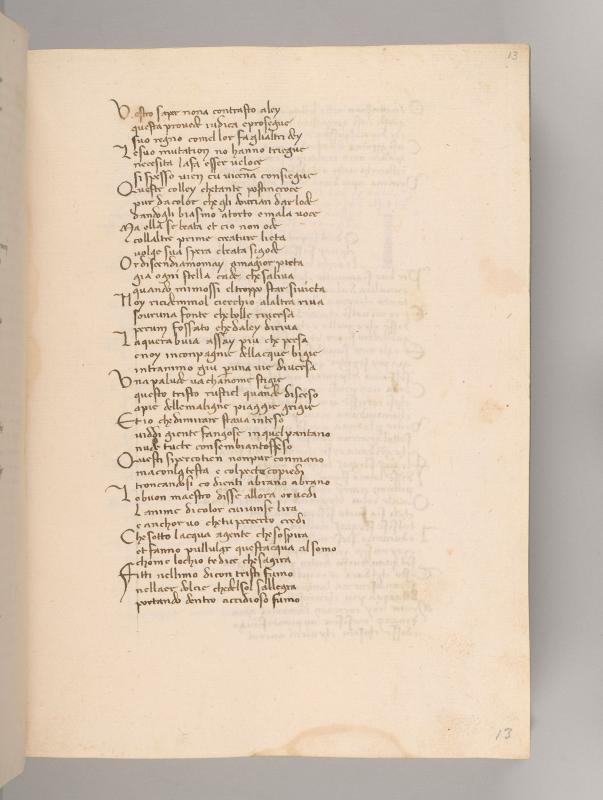 13
Vostro saper nona contrasto aley
questa provede iudica eprosegue
suo regno come llor fa glialtri dey
Lesuo mutation no hanno triegue
necesita lafa esser veloce
si spesso vien cu vicena consiegue
Queste colley chetante postincroce
pur dacolor che gli dourian dar lode
dandogli biasmo atorto emala voce
Ma ella se beata et cio non ode
collaltre prime creature lieta
volge sua spera ebeata sigode
Or discendiamomay amagor pieta
gia ogni stella cade chesaliva
quando mimossi eltroppo star sivieta
Noy ricidemmol cierchio alaltra riva
souruna fonte chebolle riversa
perum fossato chedaley diriva
Laquera buia assay piu che persa
enoy incompagnie dellacque bigie
intrammo giu puna via diversa
Una palude va chanome stigie
questo tristo ruscel quande disceso
apie dellemaligne piaggie grigie
Et io chedimirare stava inteso
viddi giente fangose inquelpantano
nude tucte consembiantoffeso
Questi sipercotien nompur conmano
maconlatesta e colpecto copiedi
troncandosi co denti abrano abrano
Lobuon maestro disse allora orvedi
lanime dicolor cuivinse lira
e anchor vo chetu percerto credi
Chesotto lacqua agente chesospira
et fanno pullular questacqua alsomo
chome lochio te dice chesagira
Fitti nellimo dicon tristi fumo
nellaer dolcie chedelsol sallegra
portando dentro accidioso fumo
13